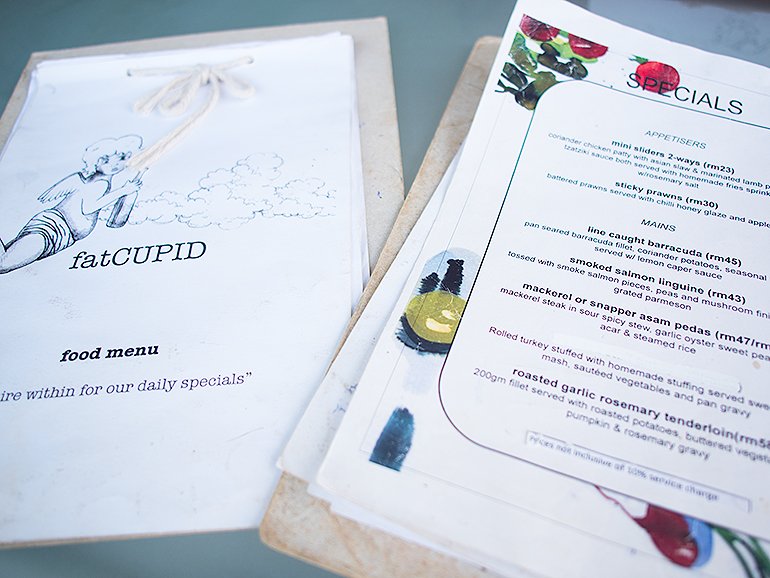 fatCUPID
food menu
ire within for our daily specials"
SPECIALS
APPETISERS
mini sliders 2-ways (rm23)
coriander chicken patty with asian slaw & marinated lamb p
tzatziki sauce both served with homemade fries sprink
w/rosemary salt
sticky prawns (rm30)
battered prawns served with chilli honey glaze and apple
MAINS
line caught barracuda (rm45)
pan seared barracuda fillet, coriander potatoes, seasonal
served w/ lemon caper sauce
smoked salmon linguine (rm43)
tossed with smoke salmon pieces, peas and mushroom fini
grated parmeson
mackerel or snapper asam pedas (rm47/rm
mackerel steak in sour spicy stew, garlic oyster sweet pea
acar & steamed rice
Rolled turkey stuffed with homemade stuffing served swee
mash, sautéed vegetables and pan gravy
roasted garlic rosemary tenderloin(rm58
200gm fillet served with roasted potatoes, buttered veget
pumpkin & rosemary gravy
Prices not inclusive of 10% service charge